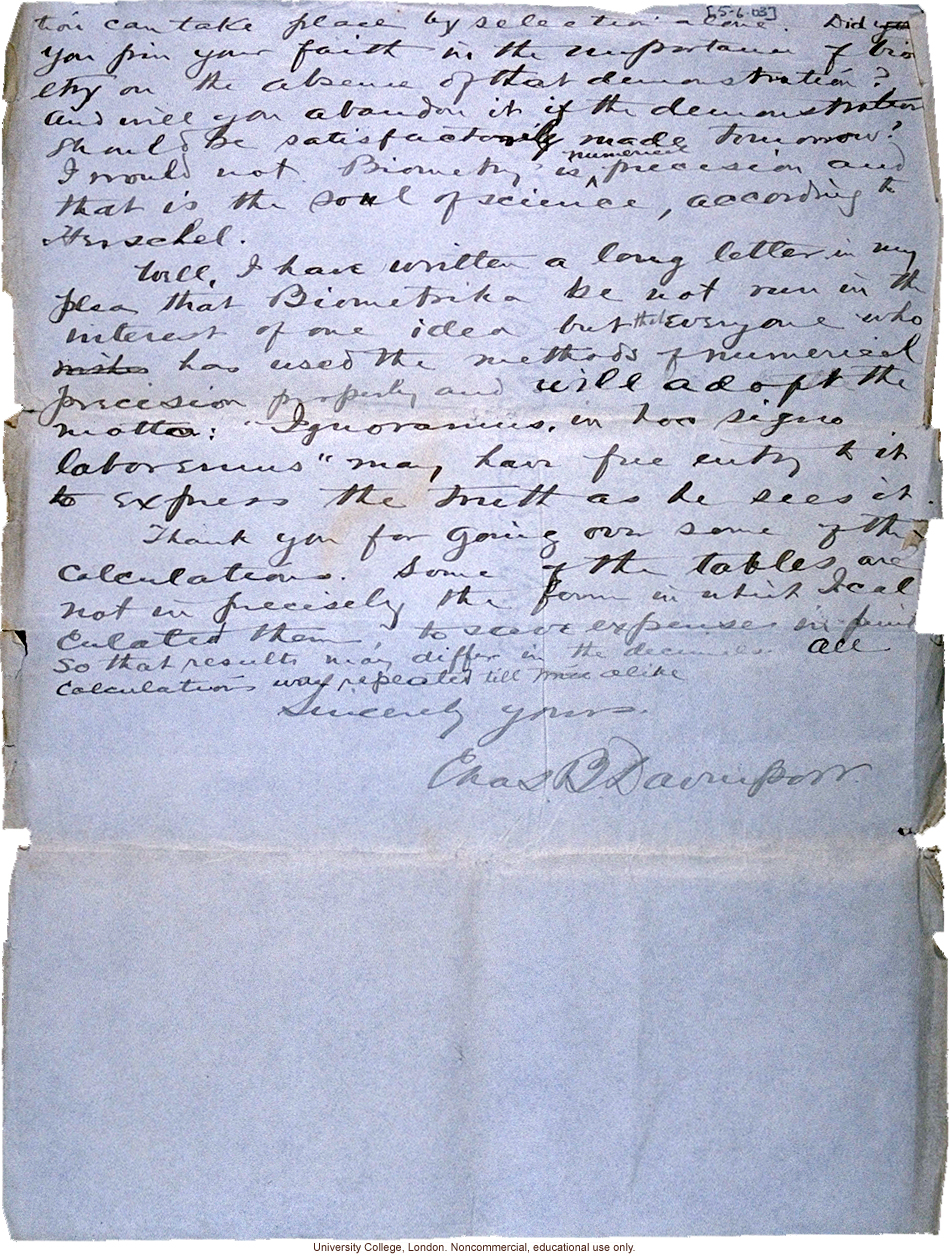 [5-6-03]
tion can take place by selection alone. Did you
you pin your faith in the importance of bio
etry on the absence of that demonstration?
and will you abandon it if the demonstration
should be satisfactorily made tomorrow?
I would not. Biometry is numerical precision and
that is the soul of science, according to
Herschel.
Well, I have written a long letter in my
plea that Biometrika be not run in the
interest of one idea but that everyone who
wishes has used the methods of numerical
precision properly and will adopt the
motto: "Ignoramus, in hoc signo
laboremus" may have free entry to it
to express the truth as he sees it.
Thank you for going over some of the
calculations. Some of the tables are
not in precisely the form in which I cal
culated them to save expenses in print
so that results may differ in the decimals. All
calculations were repeated till twice alike
Sincerely yours.
Chas B. Davenport.
University College, London. Noncommercial, educational use only.